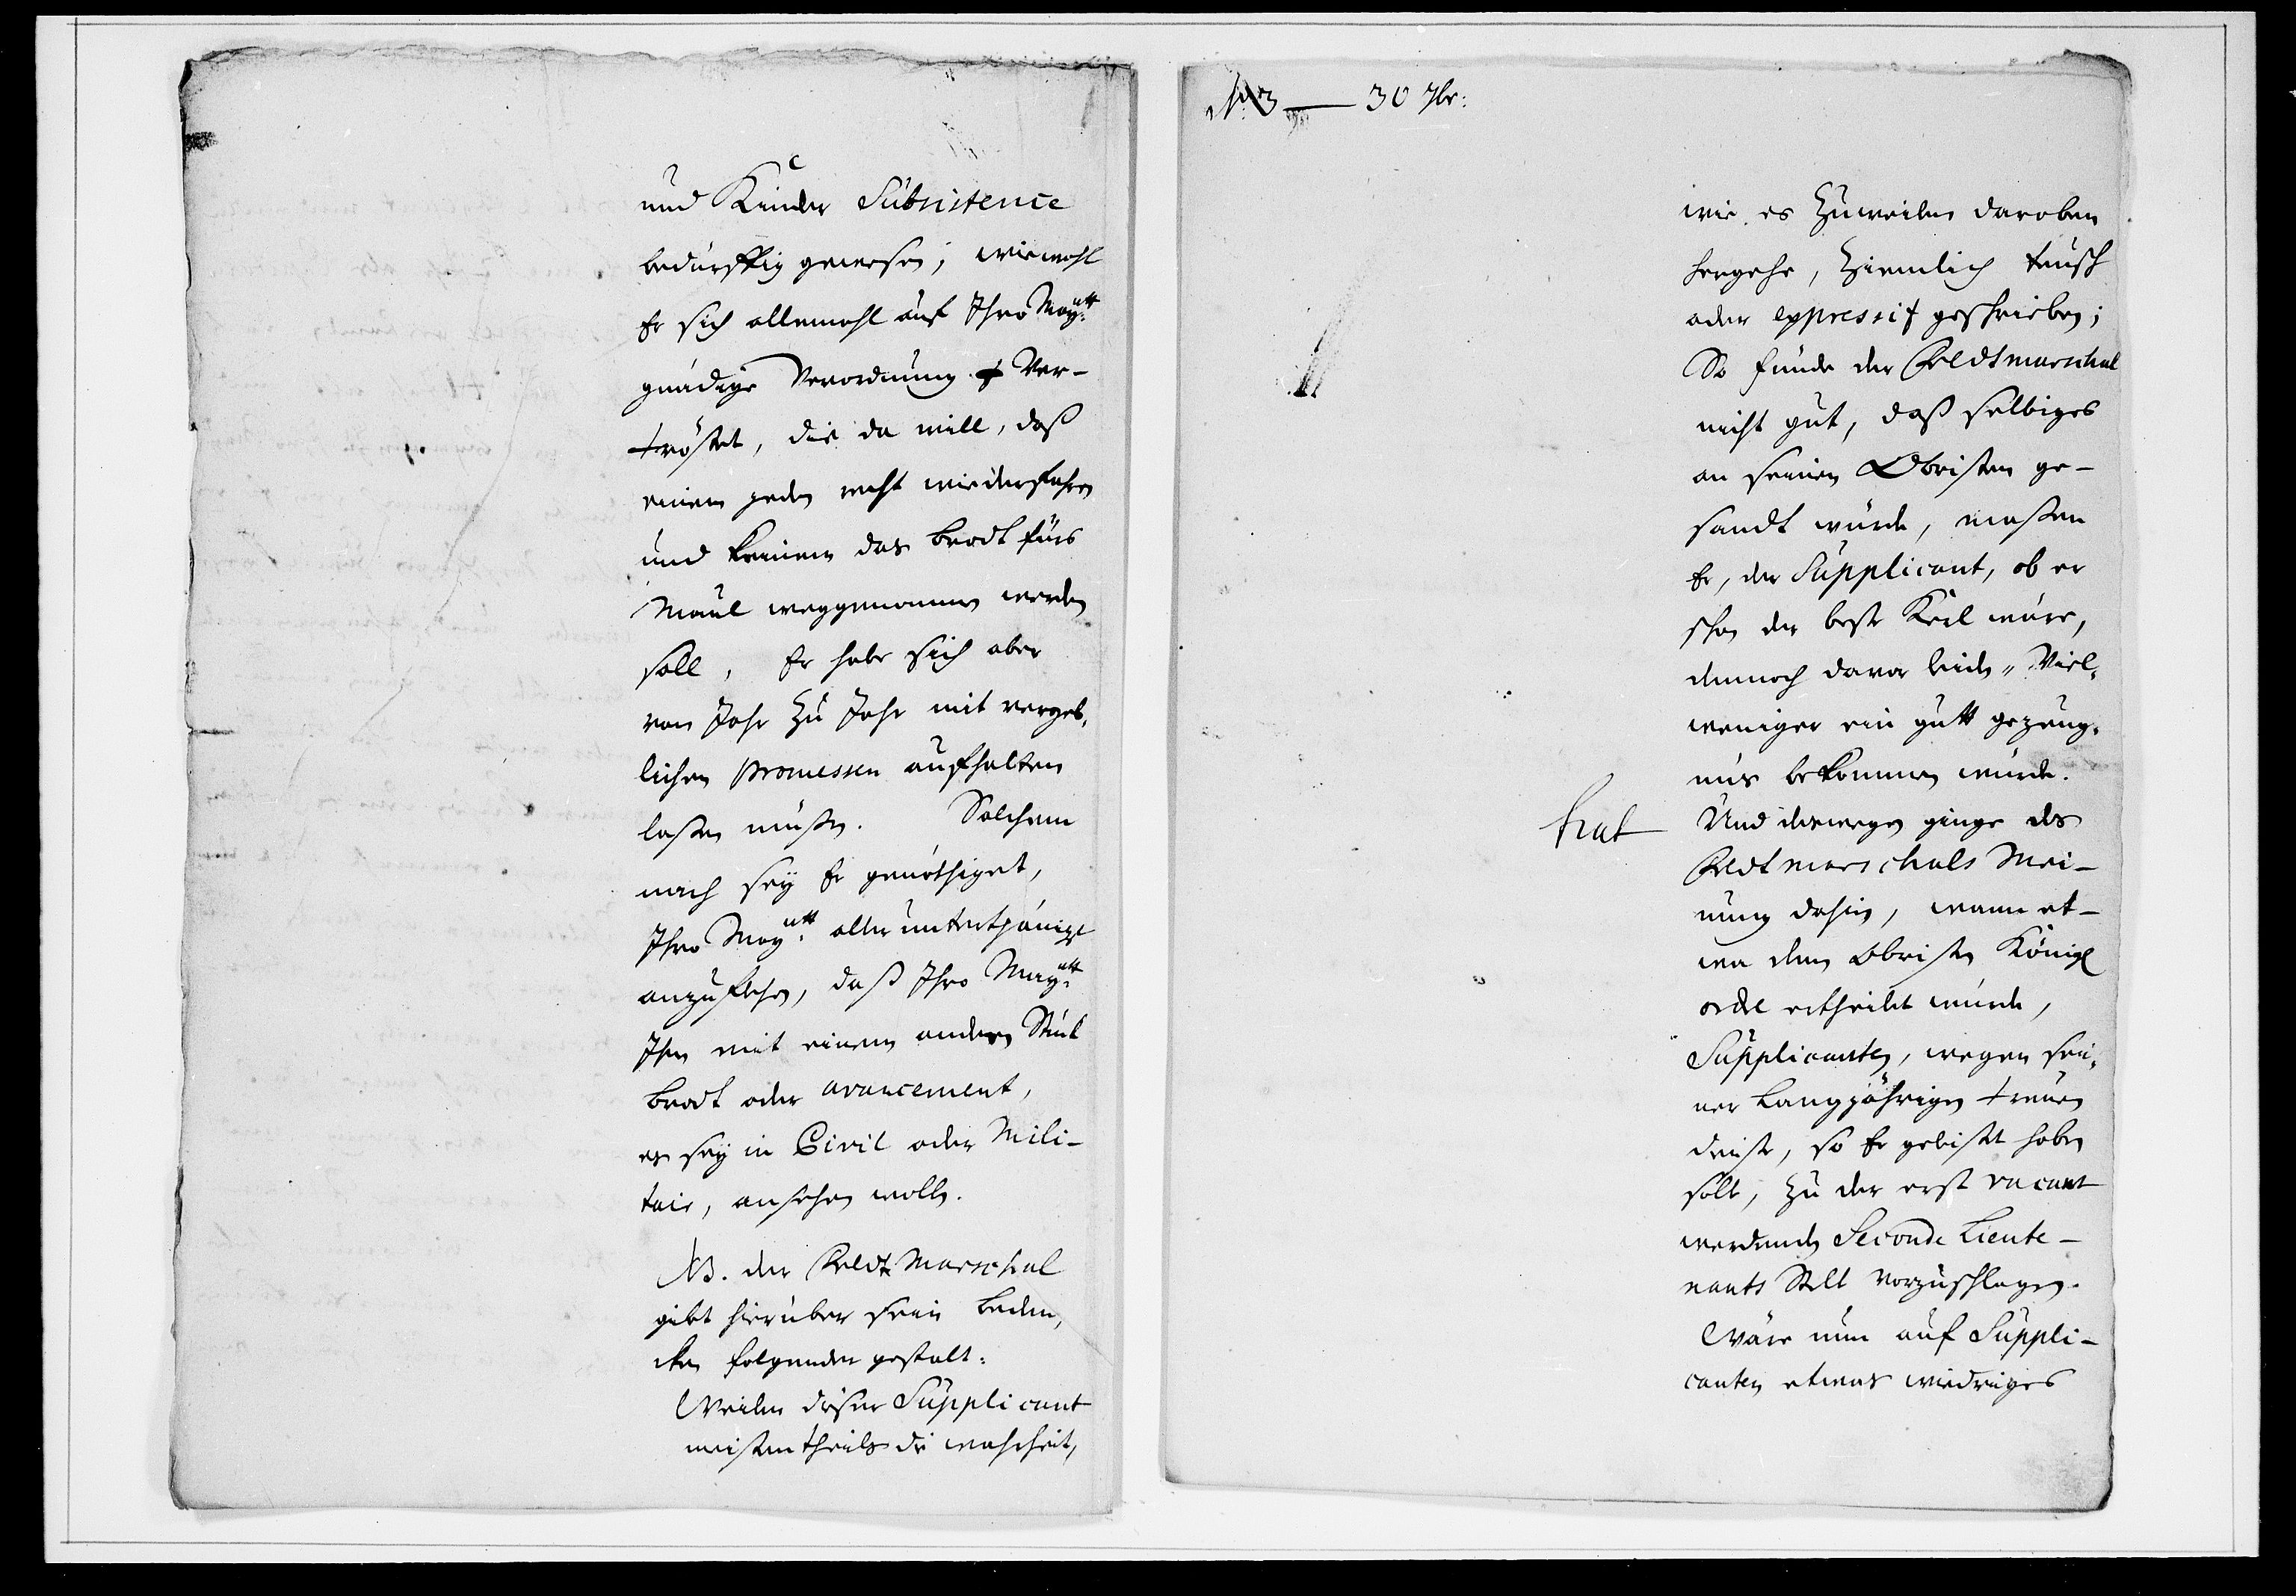 und Kinder Subsistence
bedürfftig gewesen; wiewohl
Er sich allemahl auf Ihro Maytt:
gnädige Verordnung Ver-
tröstet, die da will, daß
einem jeden recht wiederfahren
und keinem das brodt fürs
Maul weggenommen werden
soll, Er habe sich aber
von Jahr zu Jahr mit vergeb,
lichen promessen aufhalten
laßen müßen. Solchem
nach seÿ Er genöthiget,
Ihro Maytt: allerunterthänigst
anzuflehen, daß Ihro Maytt:
Ihn mit einem andern Stück
brodt oder avancement,
es seÿ in Civil oder Mili-
tair, ansehen wolle.
NB. der Feldt Marschal
gibt hierüber sein beden,
cken folgender gestalt:
Weilen dieser Supplicant
meistentheils die wahrheit,
No 3 — 30 7br:
wie es zuweilen daroben
hergehe, ziemlich teusch
oder expressif geschrieben;
So finde der Feldtmarschal
nicht gut, daß selbiges
an seinen Obristen ge-
sandt würde, maßen
Er, der Supplicant, ob er
schon der beste Kerl wäre,
dennoch davor leiden, Viel,
weniger ein gutt gezeug,
nüs bekommen würde.
Und deswegen ginge des
Feldtmarschals Mei-
nung dahin, wann et-
wa dem Obristen Königl
ordre ertheilet würde,
Supplicanten, wegen sei,
ner Langjährigen treuen
dienste, so Er geleistet haben
solle, zu der erst vacant
werdenden Seconde Lieute-
nants Stelle vorzuschlagen.
Wäre nun auf Suppli-
canten etwas wiedriges